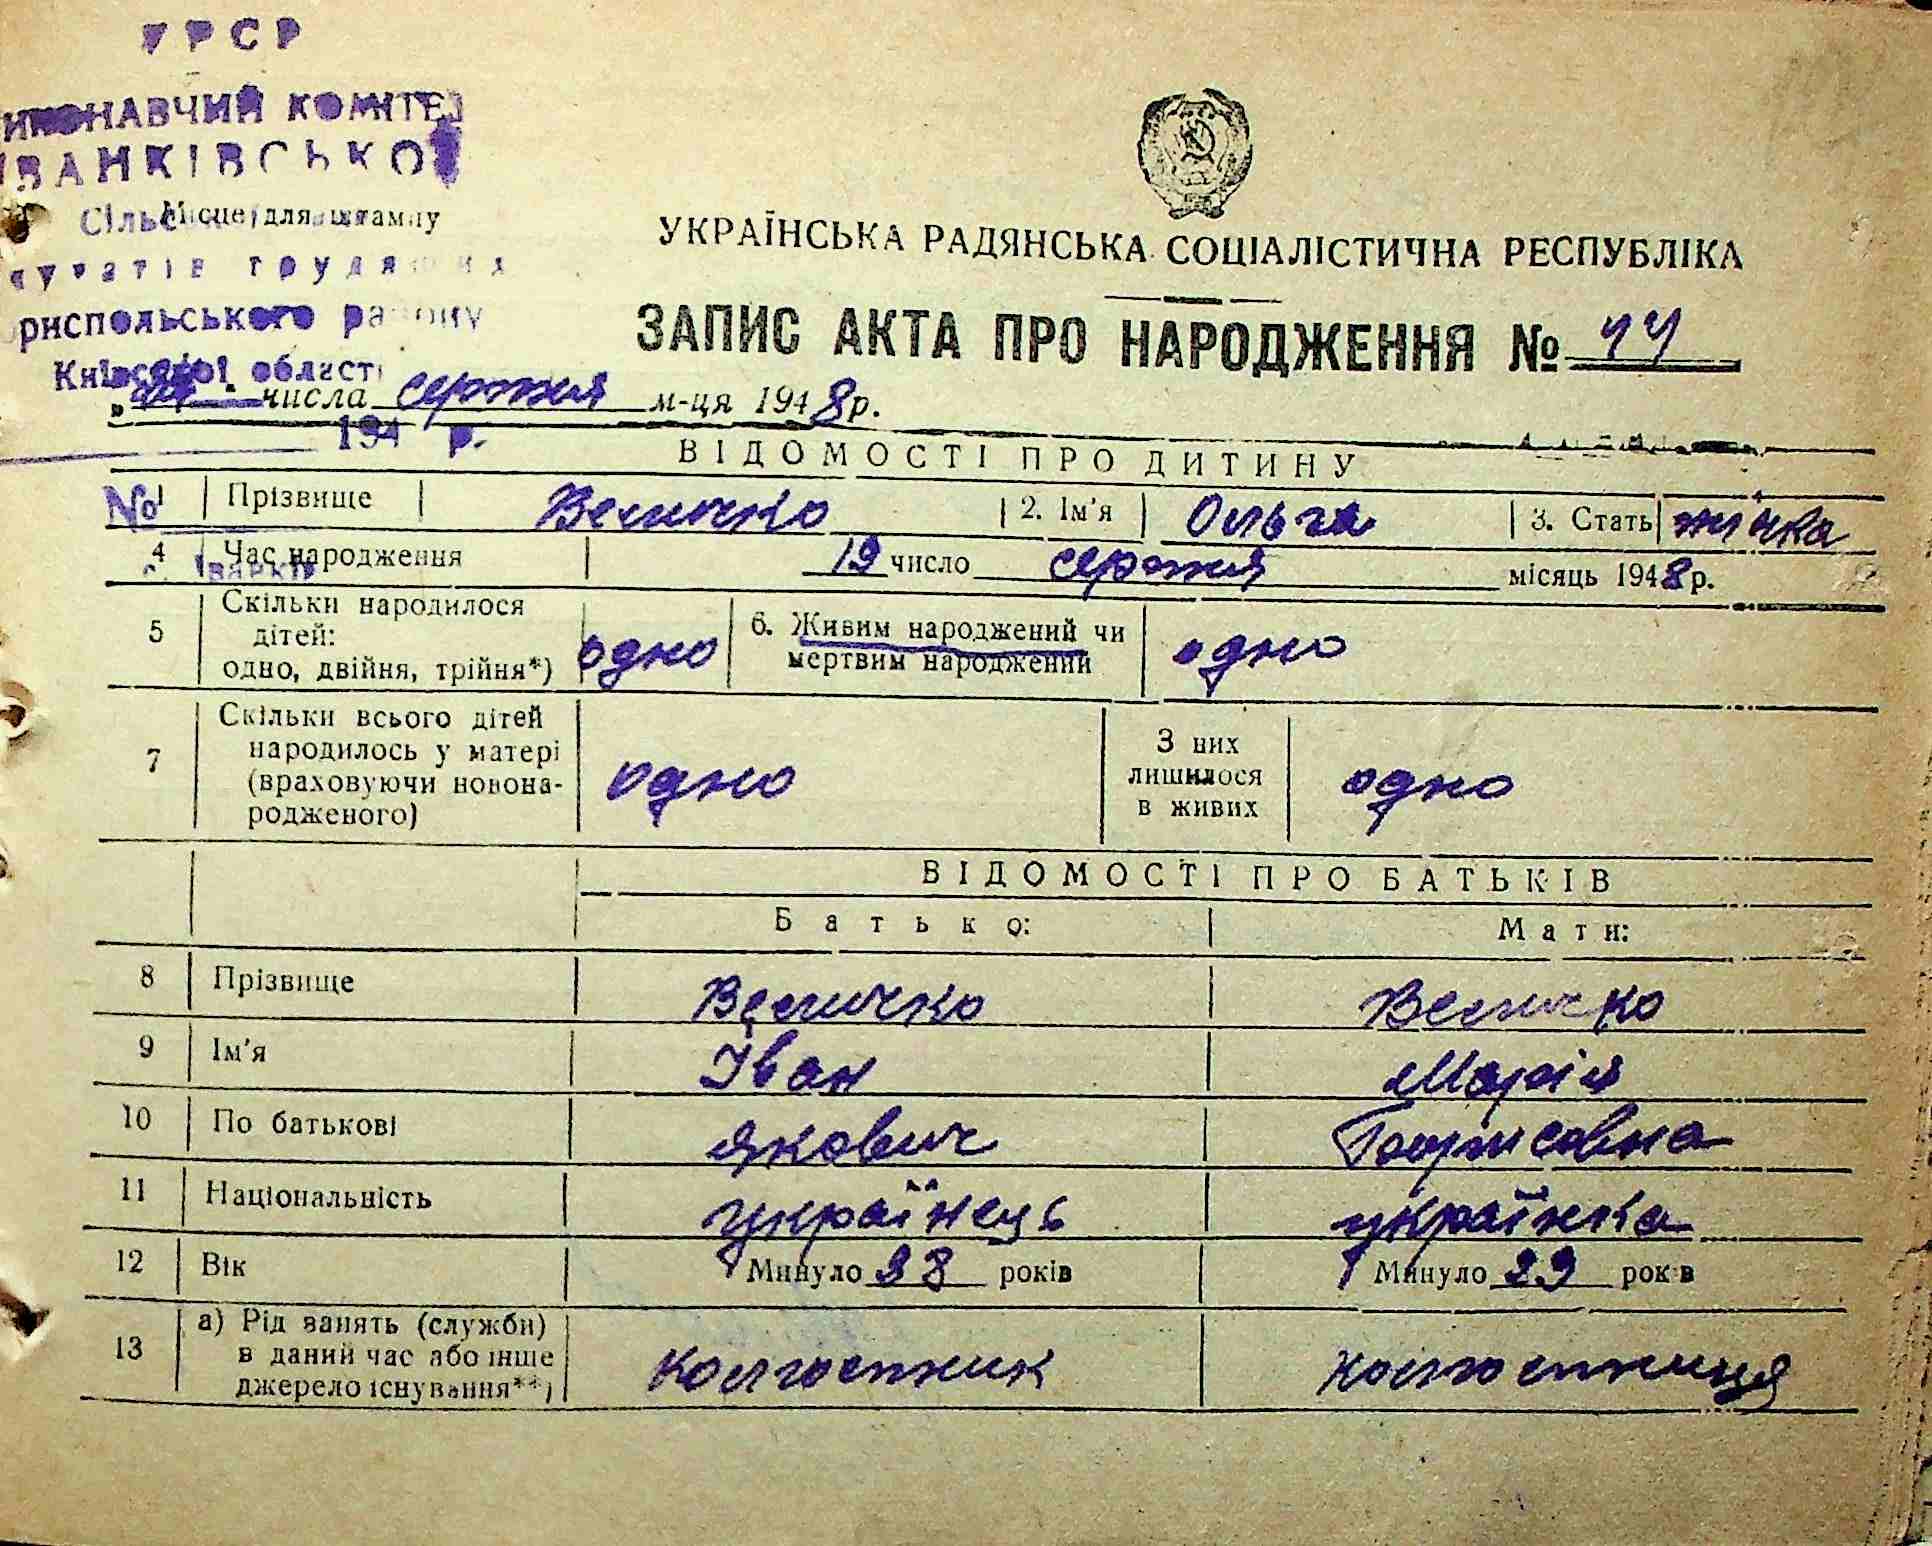 УРСР
ИКОНАВЧИЙ КОМІТЕТ
ІВАНКІВСЬКОЇ
Місце для штампу
трудящих
риспольського району
Київської області
числа серпня м-ця 1948р.
194 р.
УКРАЇНСЬКА РАДЯНСЬКА СОЦІАЛІСТИЧНА РЕСПУБЛІКА
ЗАПИС АКТА ПРО НАРОДЖЕННЯ №
ВІДОМОСТІ ПРО ДИТИНУ
№ 1 Прізвище Величко 2. Ім'я Ольга 3. Стать жінка
4 Час народження 19 число серпня місяць 1948р.
5 Скільки народилося
дітей:
одно, двійня, трійня*) одно 6. Живим народжений чи
мертвим народжений одно
7 Скільки всього дітей
народилось у матері
(враховуючи новона-
родженого) одно З них
лишилося
в живих одно
ВІДОМОСТІ ПРО БАТЬКІВ
Батько: Мати:
8 Прізвище Величко Величко
9 Ім'я Іван Марія
10 По батькові Якович Борисовна
11 Національність українець українка
12 Вік Минуло років Минуло років
13 а) Рід занять (служби)
в даний час або інше
джерело існування**) колгоспник колгоспниця